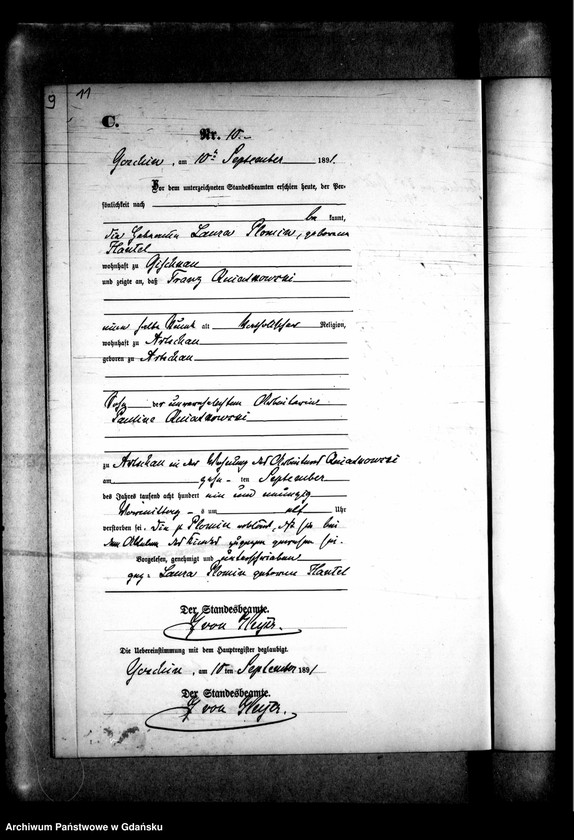 9
11
C.
Nr. 10.
Goschin, am 10ten September 1891.
Vor dem unterzeichneten Standesbeamten erschien heute, der Per-
sönlichkeit nach
be kannt,
die Hebamme Laura Plomin, geborene
Hantel
wohnhaft zu Gischkau
und zeigte an, daß Franz Kniatkowski
eine halbe Stunde alt, katholischer Religion,
wohnhaft zu Artschau
geboren zu Artschau
Sohn der unverehelichten Arbeiterin
Pauline Kniatkowski
zu Artschau in der Wohnung des Arbeiters Kniatkowski
am zehn ten September
des Jahres tausend acht hundert ein und neunzig
Vormittags um elf Uhr
verstorben sei. Die p Plomin erklärt, daß sie bei
dem Ableben des Kindes zugegen gewesen sei.
Vorgelesen, genehmigt und unterschrieben
gez: Laura Plomin geborene Hantel
Der Standesbeamte.
von Heyer.
Die Uebereinstimmung mit dem Hauptregister beglaubigt.
Goschin, am 10ten September 1891
Der Standesbeamte.
von Heyer.
Archiwum Państwowe w Gdańsku